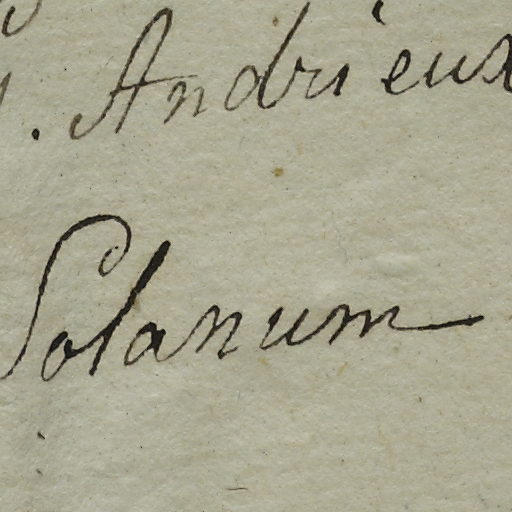 . Andrieux
Solanum